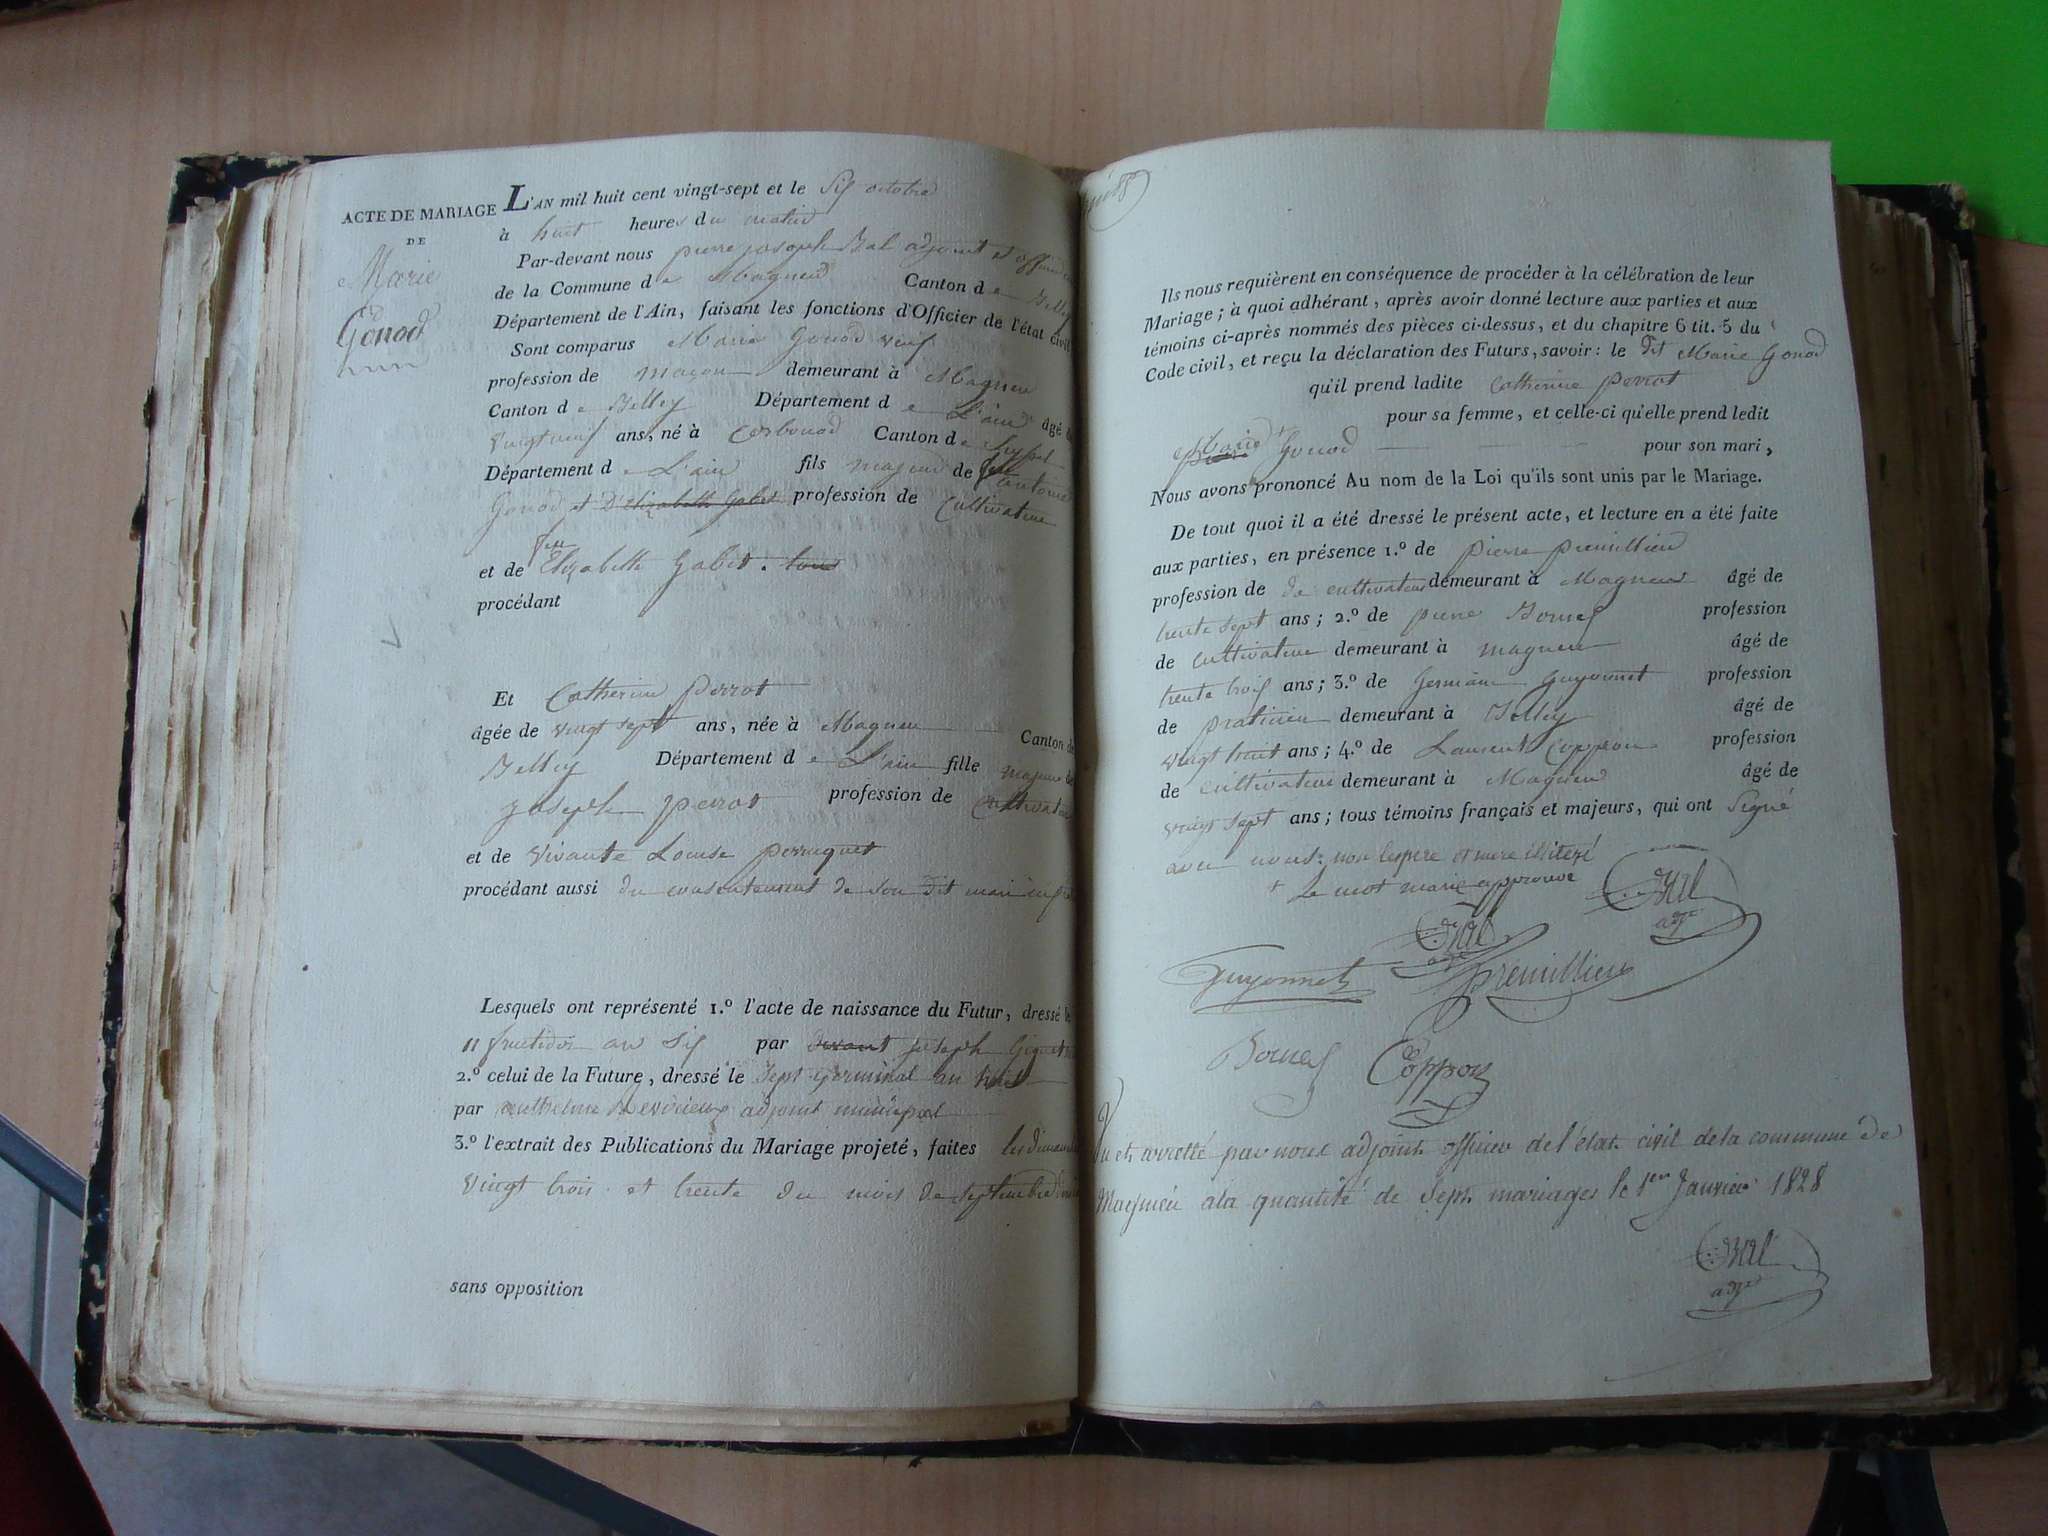 ACTE DE MARIAGE
DE
Marie
Gonod
L'AN mil huit cent vingt-sept et le Six octobre
à huit heures du matin
Par-devant nous pierre joseph Bal adjoint et
de la Commune de Magneu Canton de Belley
Département de l'Ain, faisant les fonctions d'Officier de l'état civil
Sont comparus Marie Gonod veuf
profession de maçon demeurant à Magneu
Canton de Belley Département de L'ain âgé de
vingt neuf ans, né à Corbonod Canton de Seyssel
Département de L'ain fils majeur de feu antoine
Gonod et D'Elizabeth Gabet profession de Cultivateur
et de feu Elizabeth Gabet. tous
procédant
Et Catherine Perrot
âgée de vingt sept ans, née à Magneu Canton de
Belley Département de L'ain fille majeure de
joseph perrot profession de Cultivateur
et de vivante Louise perruquet
procédant aussi du consentement de son dit mari
Lesquels ont représenté 1.º l'acte de naissance du Futur, dressé le
11 fructidor an Six par devant joseph
2.º celui de la Future, dressé le Sept Germinal an huit
par anthelme adjoint municipal
3.º l'extrait des Publications du Mariage projeté, faites les dimanches
vingt trois et trente du mois de septembre
sans opposition
Ils nous requièrent en conséquence de procéder à la célébration de leur
Mariage; à quoi adhérant, après avoir donné lecture aux parties et aux
témoins ci-après nommés des pièces ci-dessus, et du chapitre 6 tit. 5 du
Code civil, et reçu la déclaration des Futurs, savoir: le dit Marie Gonod
qu'il prend ladite Catherine perrot
pour sa femme, et celle-ci qu'elle prend ledit
Marie Gonod pour son mari,
Nous avons prononcé Au nom de la Loi qu'ils sont unis par le Mariage.
De tout quoi il a été dressé le présent acte, et lecture en a été faite
aux parties, en présence 1.º de pierre premillieu
profession de de cultivateur demeurant à Magneu âgé de
trente sept ans; 2.º de pierre Bornet profession
de cultivateur demeurant à magneu âgé de
trente trois ans; 3.º de Germain Guyonnet profession
de praticien demeurant à Belley âgé de
vingt huit ans; 4.º de Laurent Coppon profession
de cultivateur demeurant à Magneu âgé de
vingt sept ans; tous témoins français et majeurs, qui ont Signé
avec nous: non les pere et mere illiteré
+ Le mot marie approuvé
Bal
adj
Bal
Guyonnet premillieu
Bornet Coppon
Vu et arretté par nous adjoint officier de l'état civil de la commune de
Magnieu a la quantité de Sept mariages le 1er Janvier 1828
Bal
adj